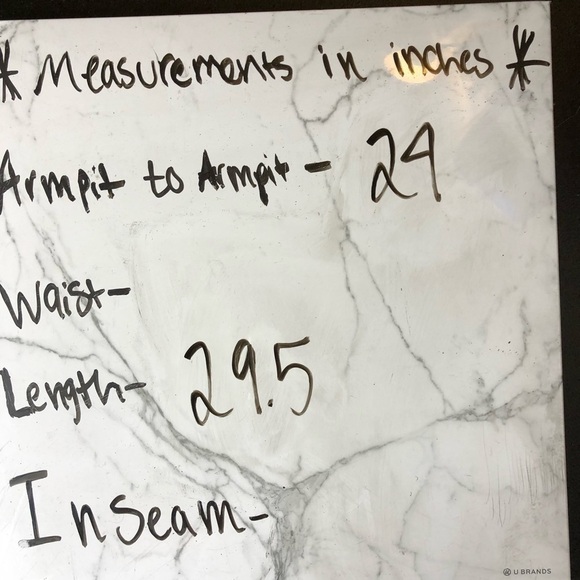 * Measurements in inches *
Armpit to Armpit - 24
Waist-
Length- 29.5
Inseam-
U BRANDS